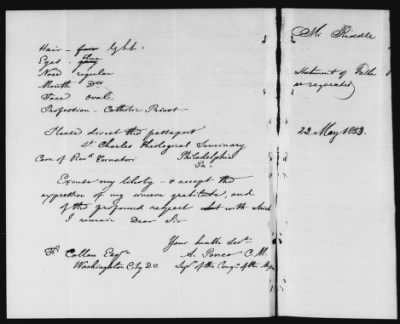 Hair – light.
Eyes – blue
Nose regular
Mouth Do
Face oval.
Profession – Catholic Priest
Please direct the passport
St Charles Theological Seminary
Care of Revd Tornatori Philadelphia
Pa –
Excuse my liberty – & accept the
expression of my sincere gratitude, and
of the profound respect with which
I remain Dear Sir
Your humble Servt
A. Penco C.M.
F. Callan Esqr
Washington City D.C.
Supr of the Congn of the
M. Riddle
Statement of Father
as requested
22 May 1853.